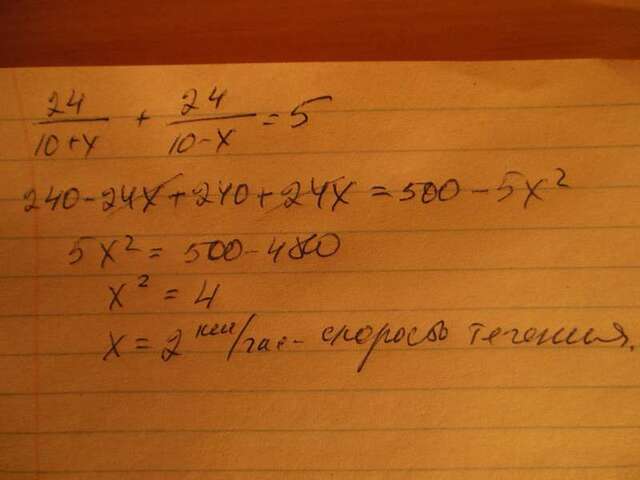 24/(10+x) + 24/(10-x) = 5
240-24x+240+24x=500-5x²
5x²=500-480
x²=4
x=2 км/час- скорость течения.